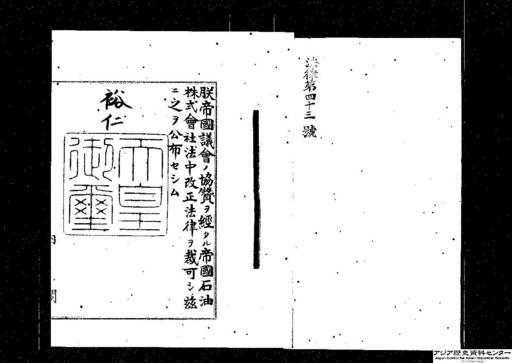 法律第四十三號
朕帝國議會ノ協贊ヲ經タル帝國石油
株式會社法中改正法律ヲ裁可シ茲
ニ之ヲ公布セシム
裕仁
天皇
御璽
内閣
アジア歴史資料センター
Japan Center for Asian Historical Records